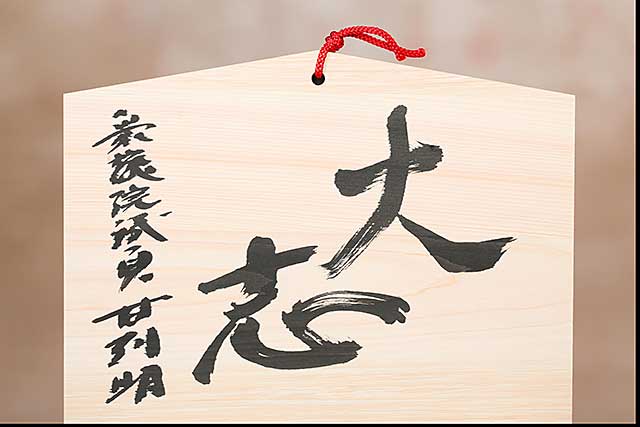 大志
衆議院議員 甘利明